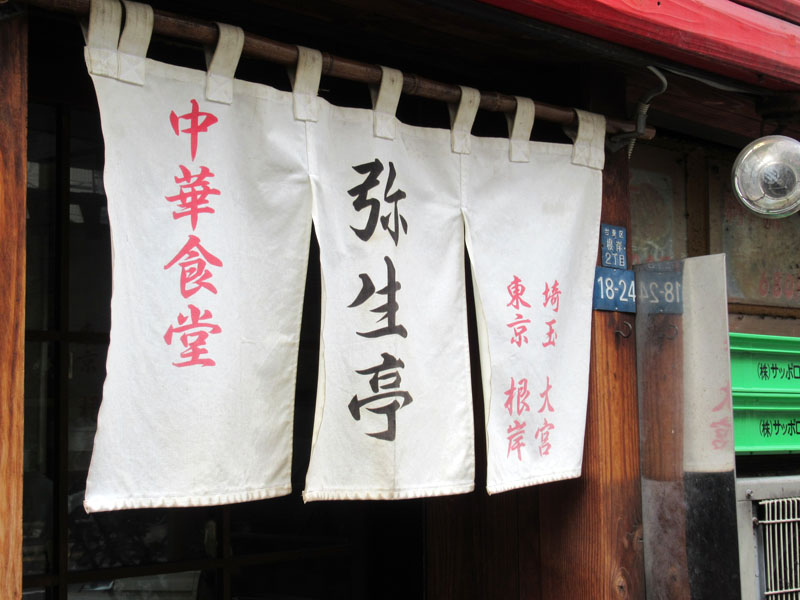 中華食堂
弥生亭
埼玉 大宮
東京 根岸
台東区
根岸
2丁目
18-24
(株)サッポロ
(株)サッポロ